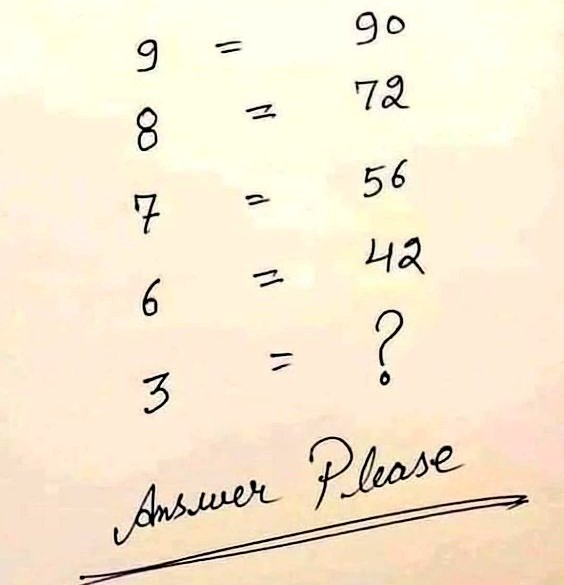 9 = 90
8 = 72
7 = 56
6 = 42
3 = ?
Answer Please